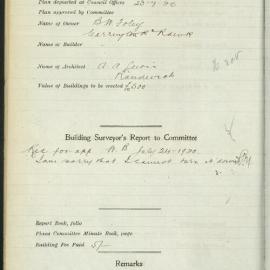 Plan deposited at Council Office 23-7-20
Plan approved by Committee
Name of Owner B.W. Foley
Carrington Rd Randwick
Name of Builder
Name of Architect A. A. Lewis
Randwick
Value of Buildings to be erected £500
Building Surveyor's Report to Committee
Rec for app. W B July 24-1920.
I am sorry that I cannot
Report Book, folio
Plans Committee Minute Book, page
Building Fee Paid 5/-
Remarks